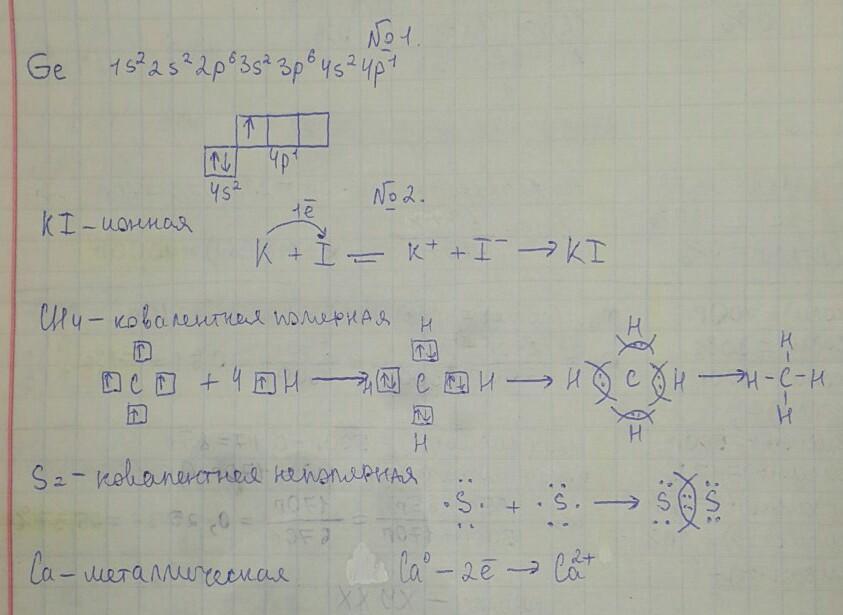 №1.
Ge 1s² 2s² 2p⁶ 3s² 3p⁶ 4s² 4p¹
↑
↑↓ 4p¹
4s²
№2.
KI – ионная
1ē
K + I = K⁺ + I⁻ → KI
CH₄ – ковалентная полярная
↑ H H H
↑ C ↑ + 4 ↑ H → H ↑↓ C ↑↓ H → H : C : H → H - C - H
↑ ↑↓ H H
H
S₂ – ковалентная неполярная
·S· + ·S· → S : S
Ca – металлическая Ca⁰ – 2ē → Ca²⁺